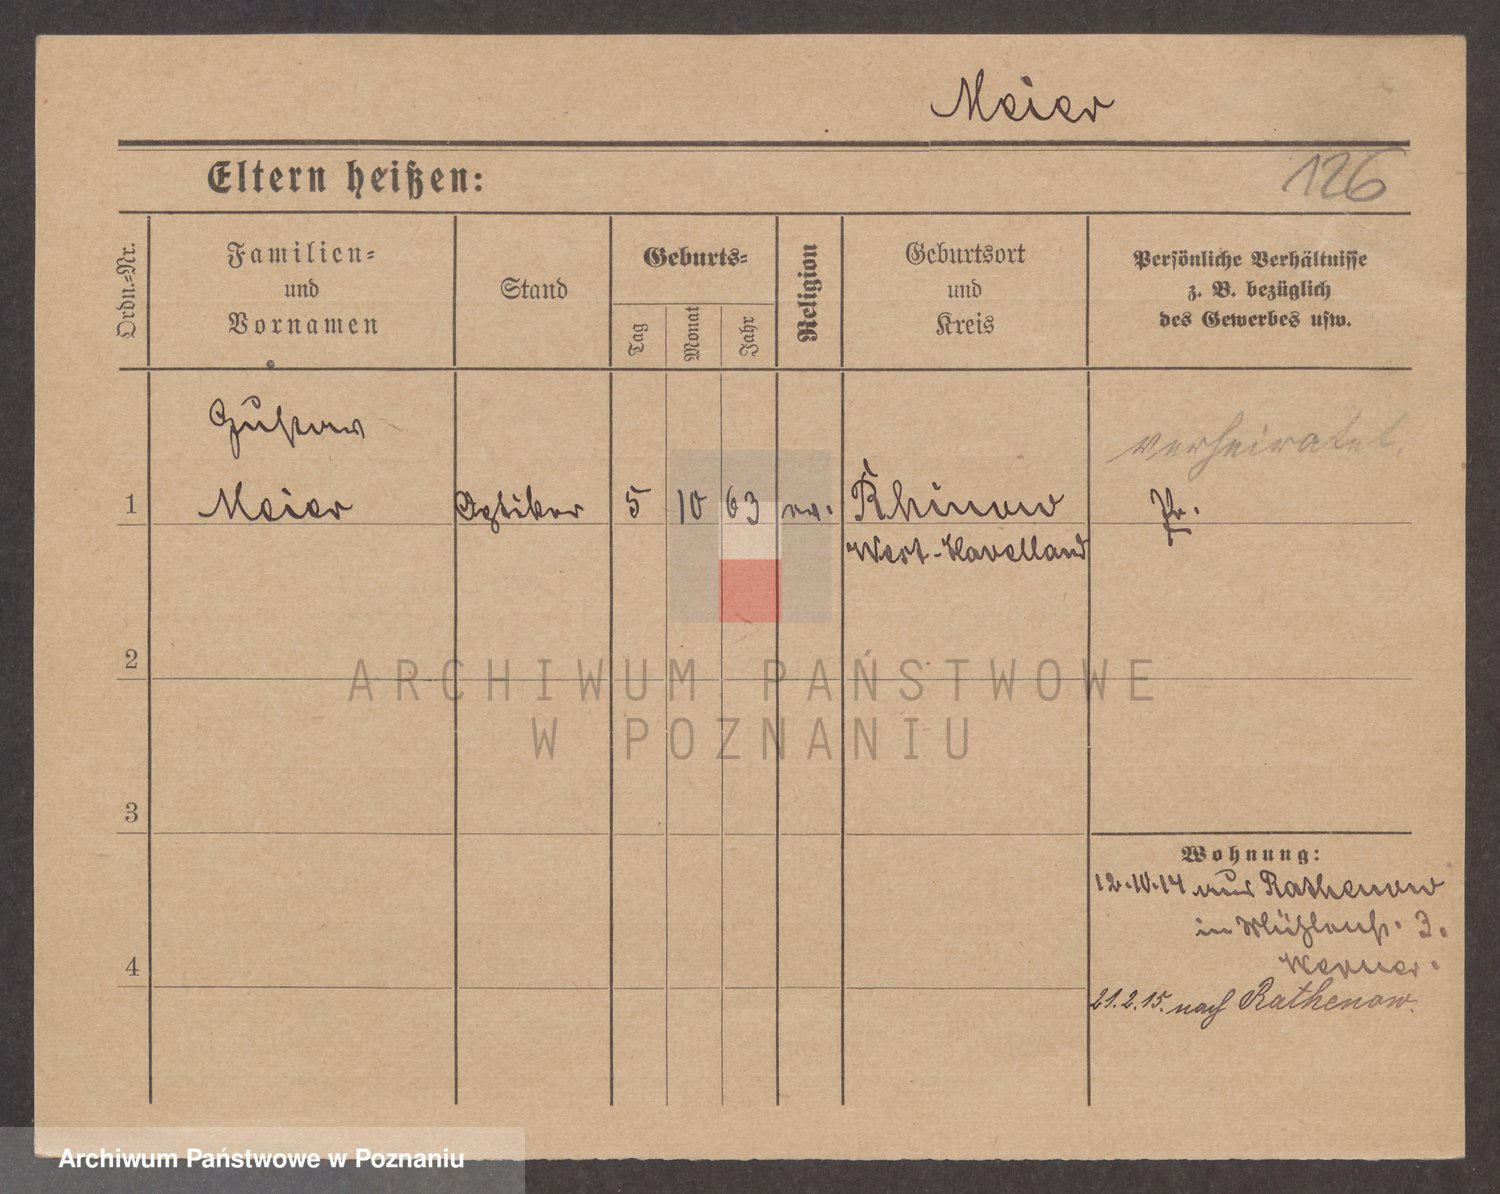 Meier
126
Eltern heißen:
Ordn.-Nr.
Familien-
und
Vornamen
Stand
Geburts-
Tag
Monat
Jahr
Religion
Geburtsort
und
Kreis
Persönliche Verhältnisse
z. B. bezüglich
des Gewerbes usw.
Gustav
verheiratet.
1 Meier Optiker 5 10 63 ev. Rhinow Pr.
West-Havelland
2
ARCHIWUM PAŃSTWOWE
W POZNANIU
3
Wohnung:
12.10.14 aus Rathenow
in Mühlenstr. 3.
Werner.
4
21.2.15. nach Rathenow.
Archiwum Państwowe w Poznaniu